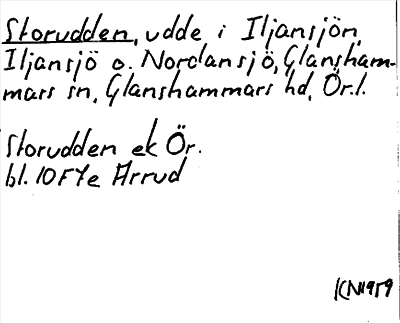 Storudden, udde i Iljansjön,
Iljansjö o. Nordansjö, Glansham-
mars sn, Glanshammars hd, Ör.l.
Storudden ek Ör.
bl. 10F7e Arrud
KN1959